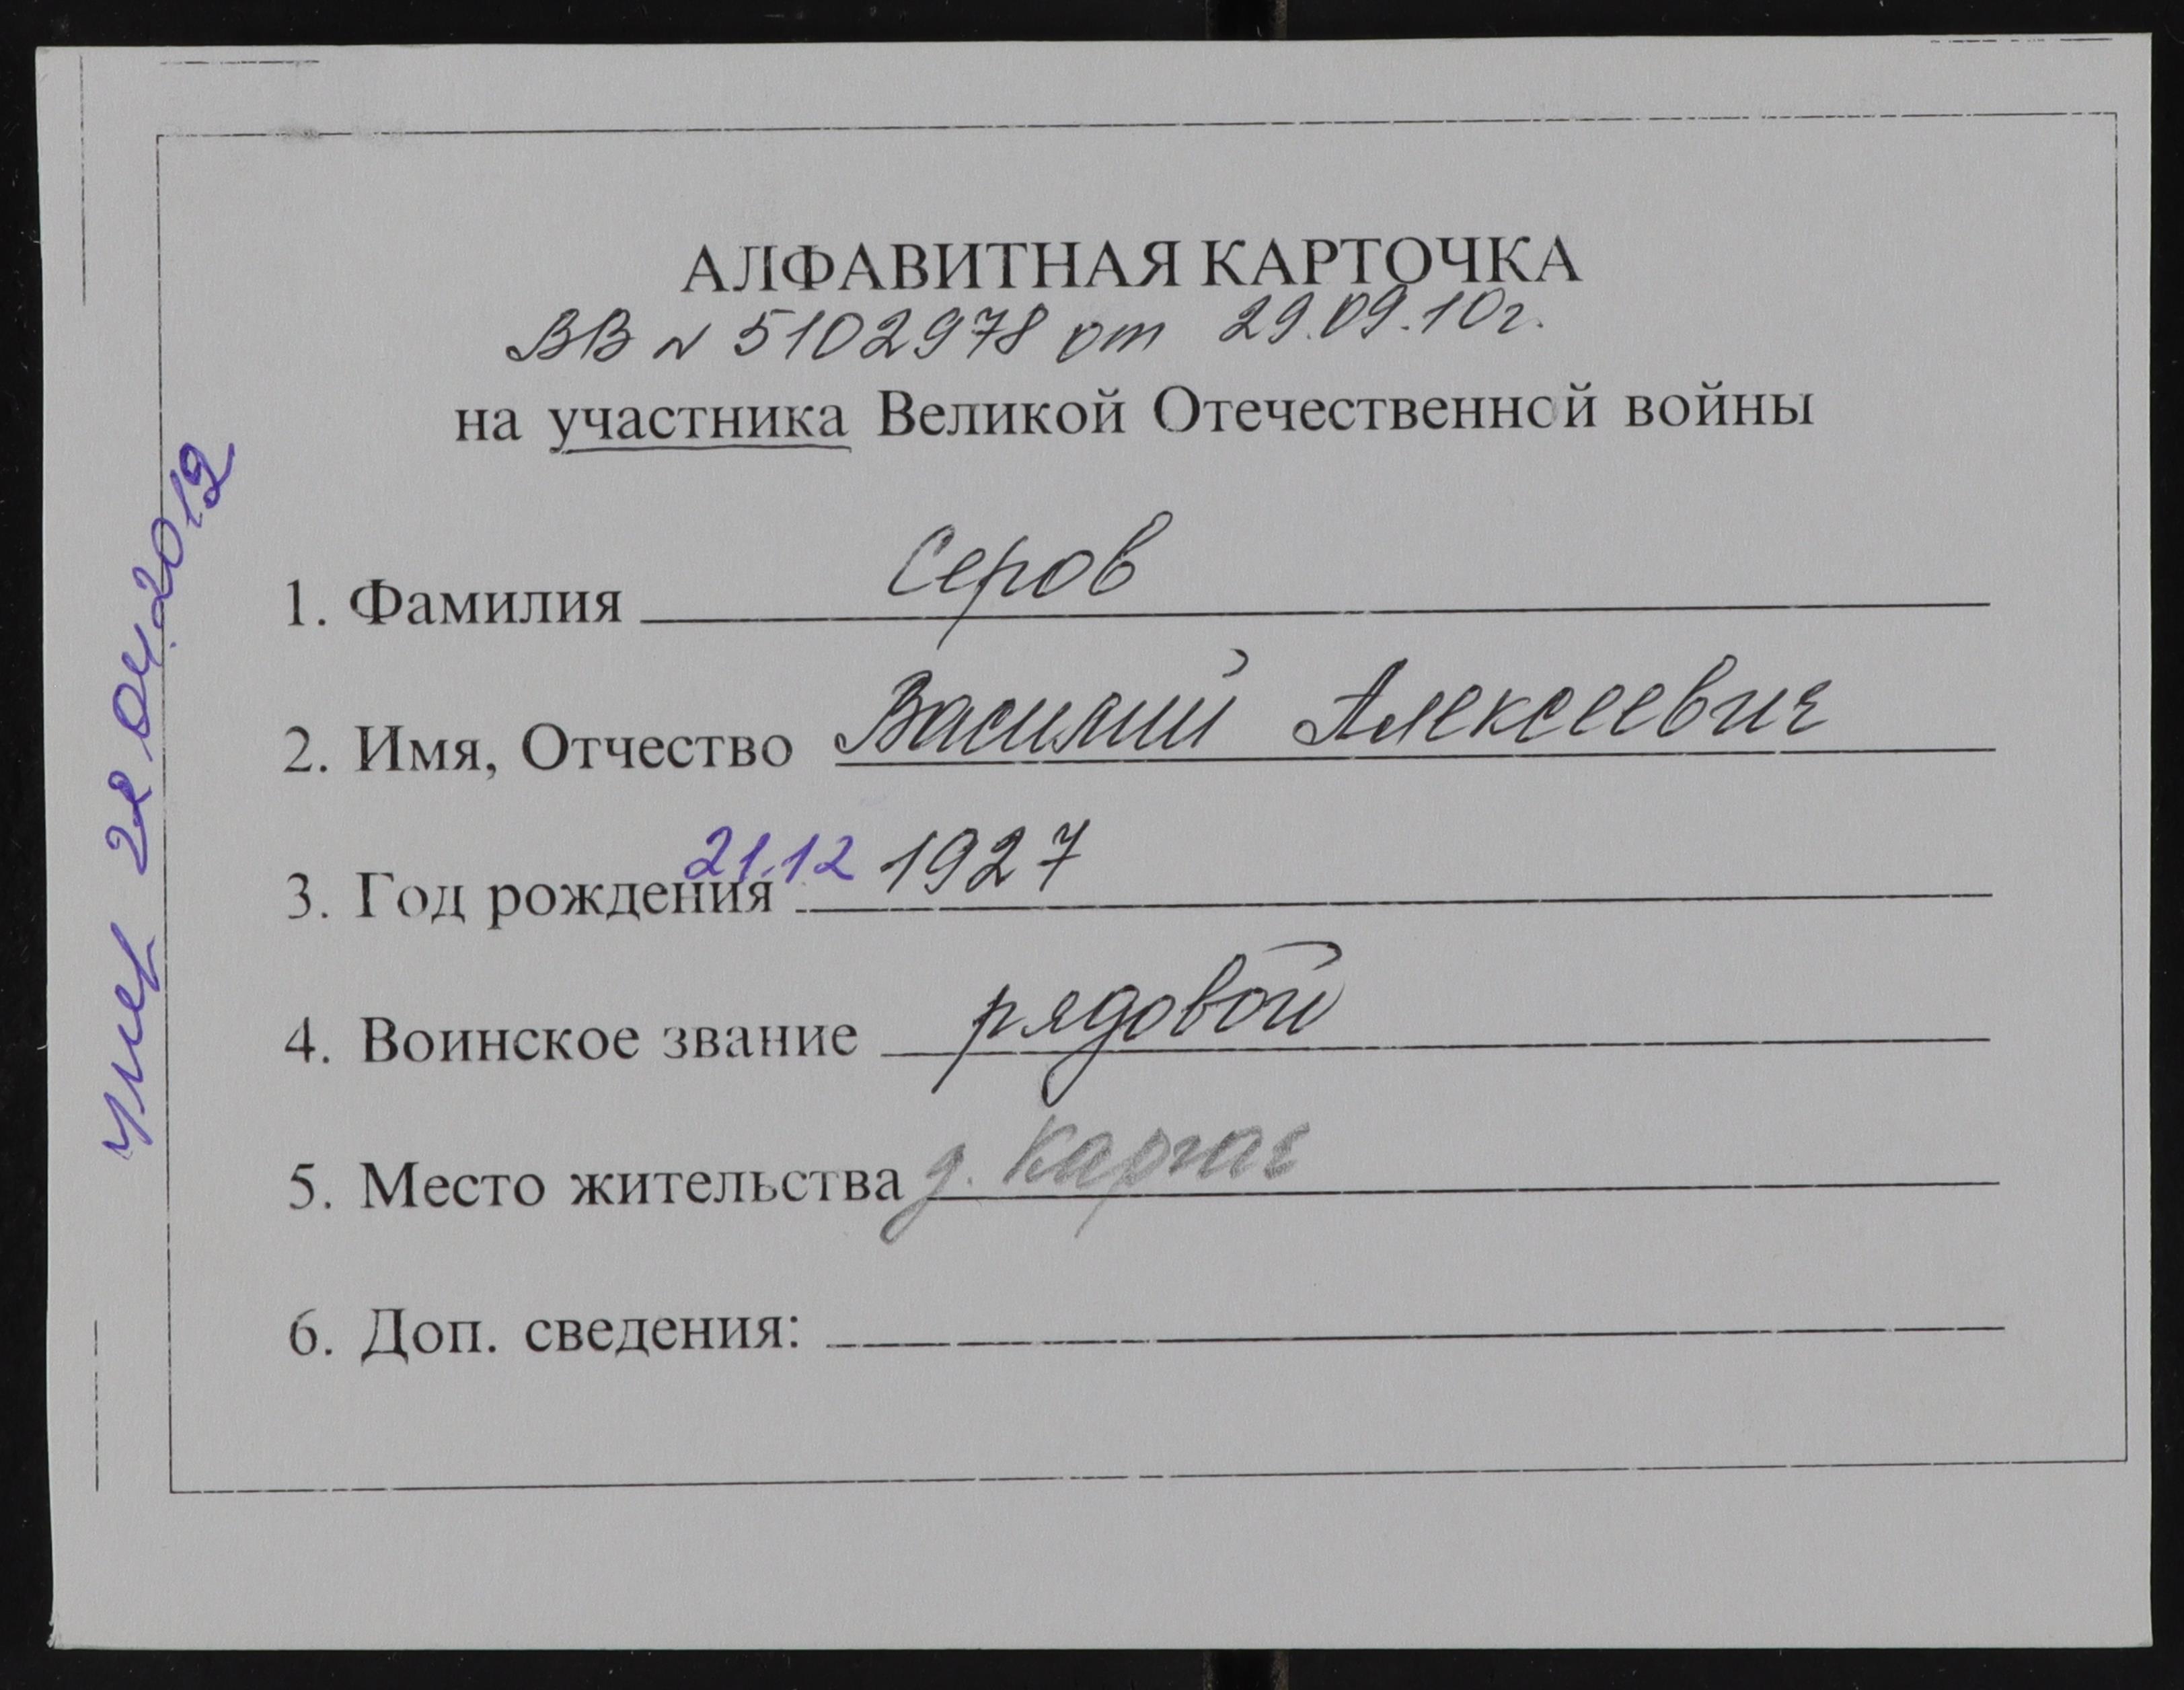 АЛФАВИТНАЯ КАРТОЧКА
ВВ № 5102978 от 29.09.10г.
на участника Великой Отечественной войны
1. Фамилия Серов
2. Имя, Отчество Василий Алексеевич
3. Год рождения 21.12 1927
4. Воинское звание рядовой
5. Место жительства д. Каргач
6. Доп. сведения:
умер 22 04.2012